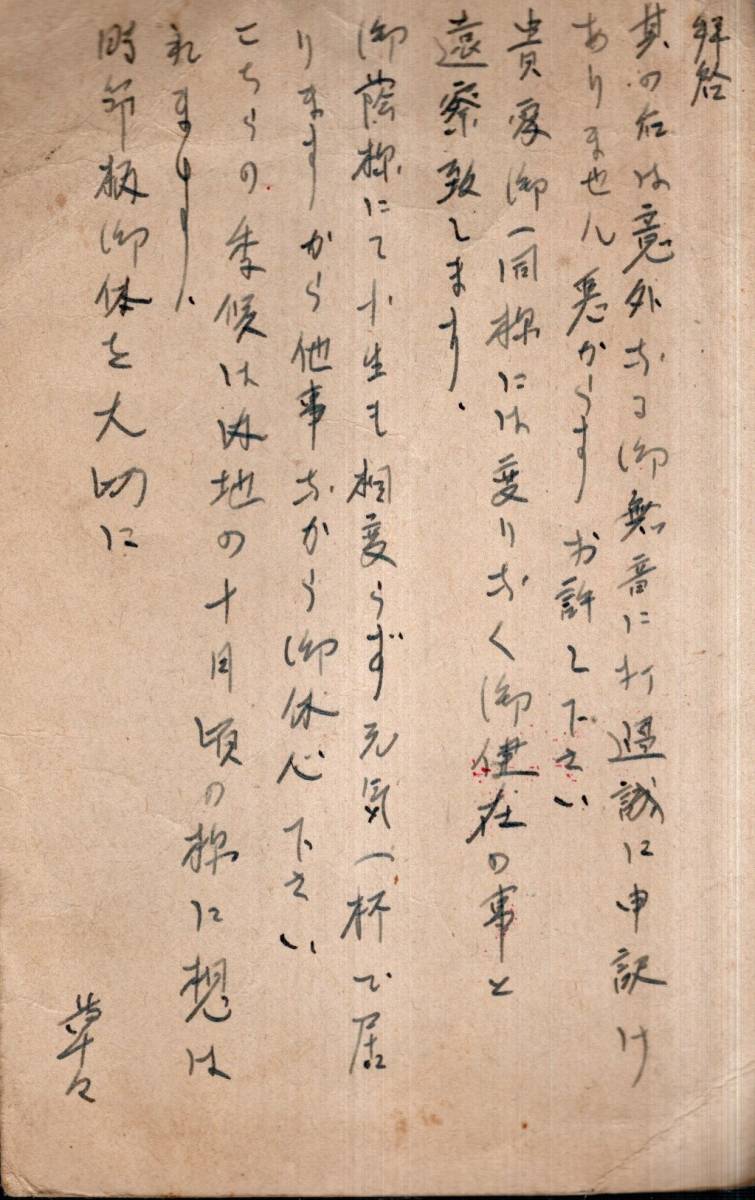 拝啓
其の后は意外なる御無音に打過誠に申訳け
ありません 悪からず お許し下さい
貴家御一同様には変りなく御健在の事と
遠察致します、
御蔭様にて小生も相変らず元気一杯で居
りますから他事ながら御休心下さい
こちらの季候は内地の十月頃の様に想は
れます、
時節柄御体を大切に
草々